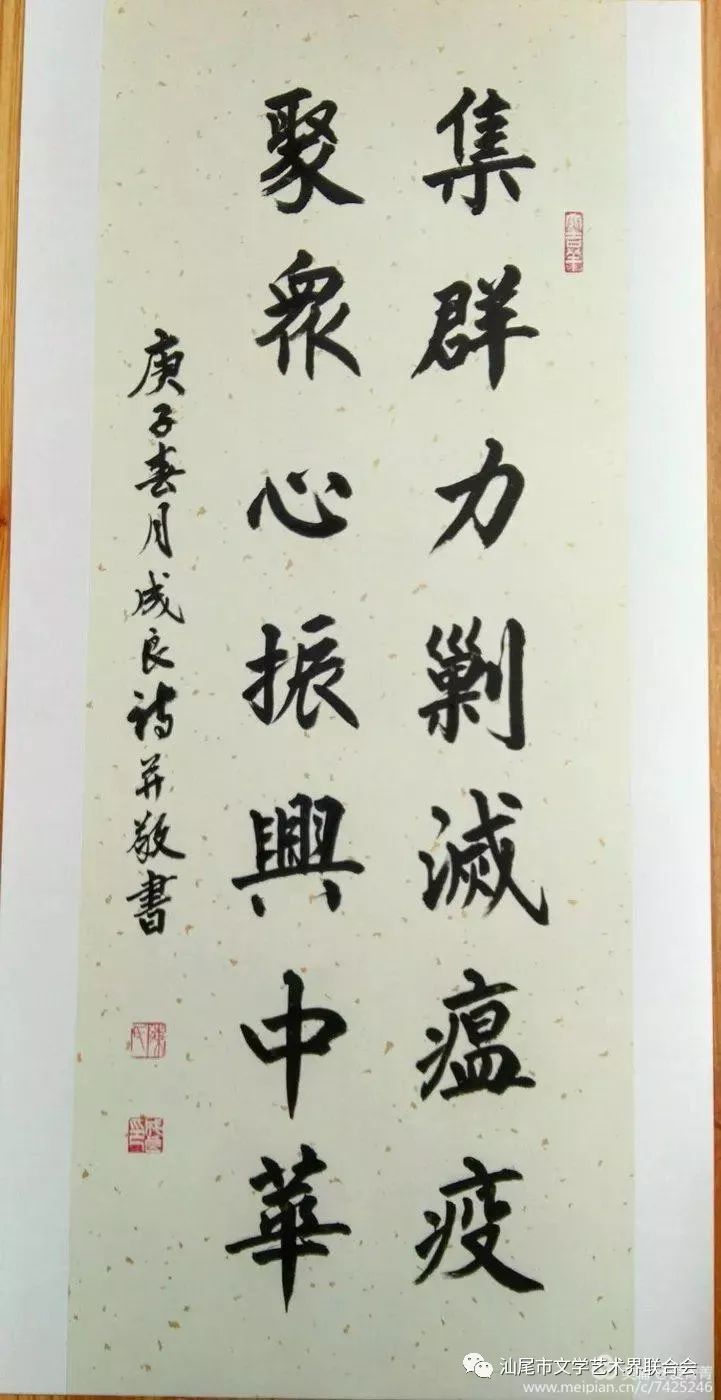 集群力剿滅瘟疫
聚眾心振興中華
庚子春月成良詩并敬書
汕尾市文学艺术界联合会
www.meipian.cn/c/7425246